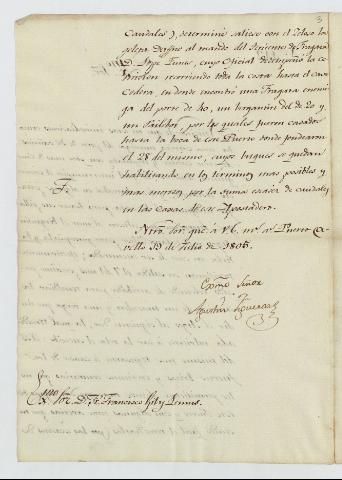 3
Caudales), determiné saliese con el Zeloso la
goleta al mando del Teniente de Fragata
D. Jose Lunas, cuyo Oficial desempeñó la co-
mision recorriendo toda la costa hasta el
en donde encontró una Fragata enemi-
ga del porte de 40, un bergantin del de 20 y
un Pailebot, por los quales fueron casados
hasta la boca de este Puerto donde fondearon
el 28 del mismo, cuyos buques se quedan
habilitando en los terminos mas posibles y
mas por la suma escasez de caudales
en las Caxas de este Apostadero.
Ntro. Sor. gue. á V.E. ms. as. Puerto Ca-
vello 19 de Julio de 1805.
Exmo Señor
Agustin Figueroa
Exmo. Sor. D. Fr. Francisco Gil y Lemus.